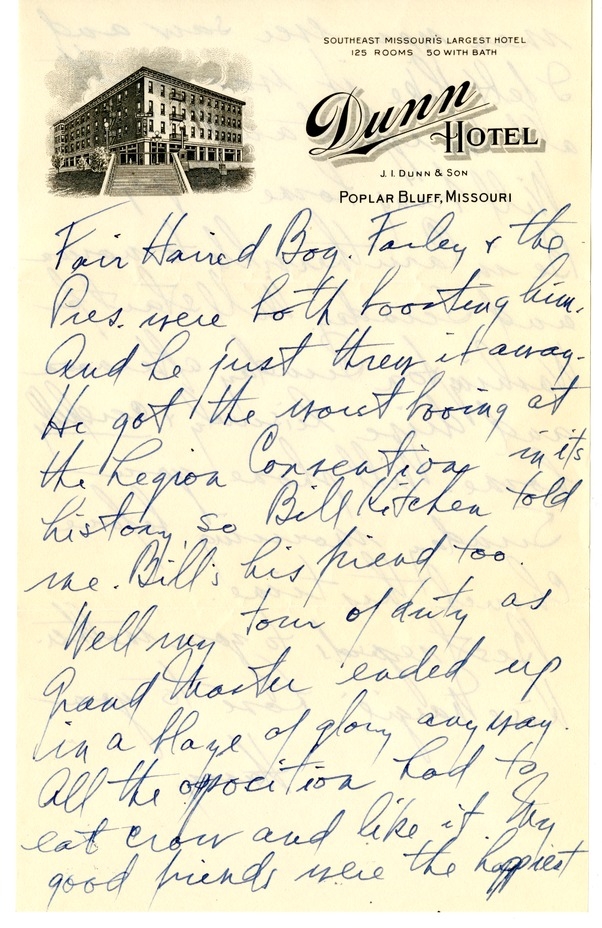 SOUTHEAST MISSOURI'S LARGEST HOTEL
125 ROOMS 50 WITH BATH
Dunn
HOTEL
J. I. DUNN & SON
POPLAR BLUFF, MISSOURI
Fair Haired Boy. Farley & the
Pres. were both boosting him.
And he just threw it away.
He got the worst booing at
the Legion Convention in its
history, so Bill Kitchen told
me. Bill's his friend too.
Well my tour of duty as
Grand Master ended up
in a blaze of glory anyway.
All the opposition had to
eat crow and like it. My
good friends were the happiest